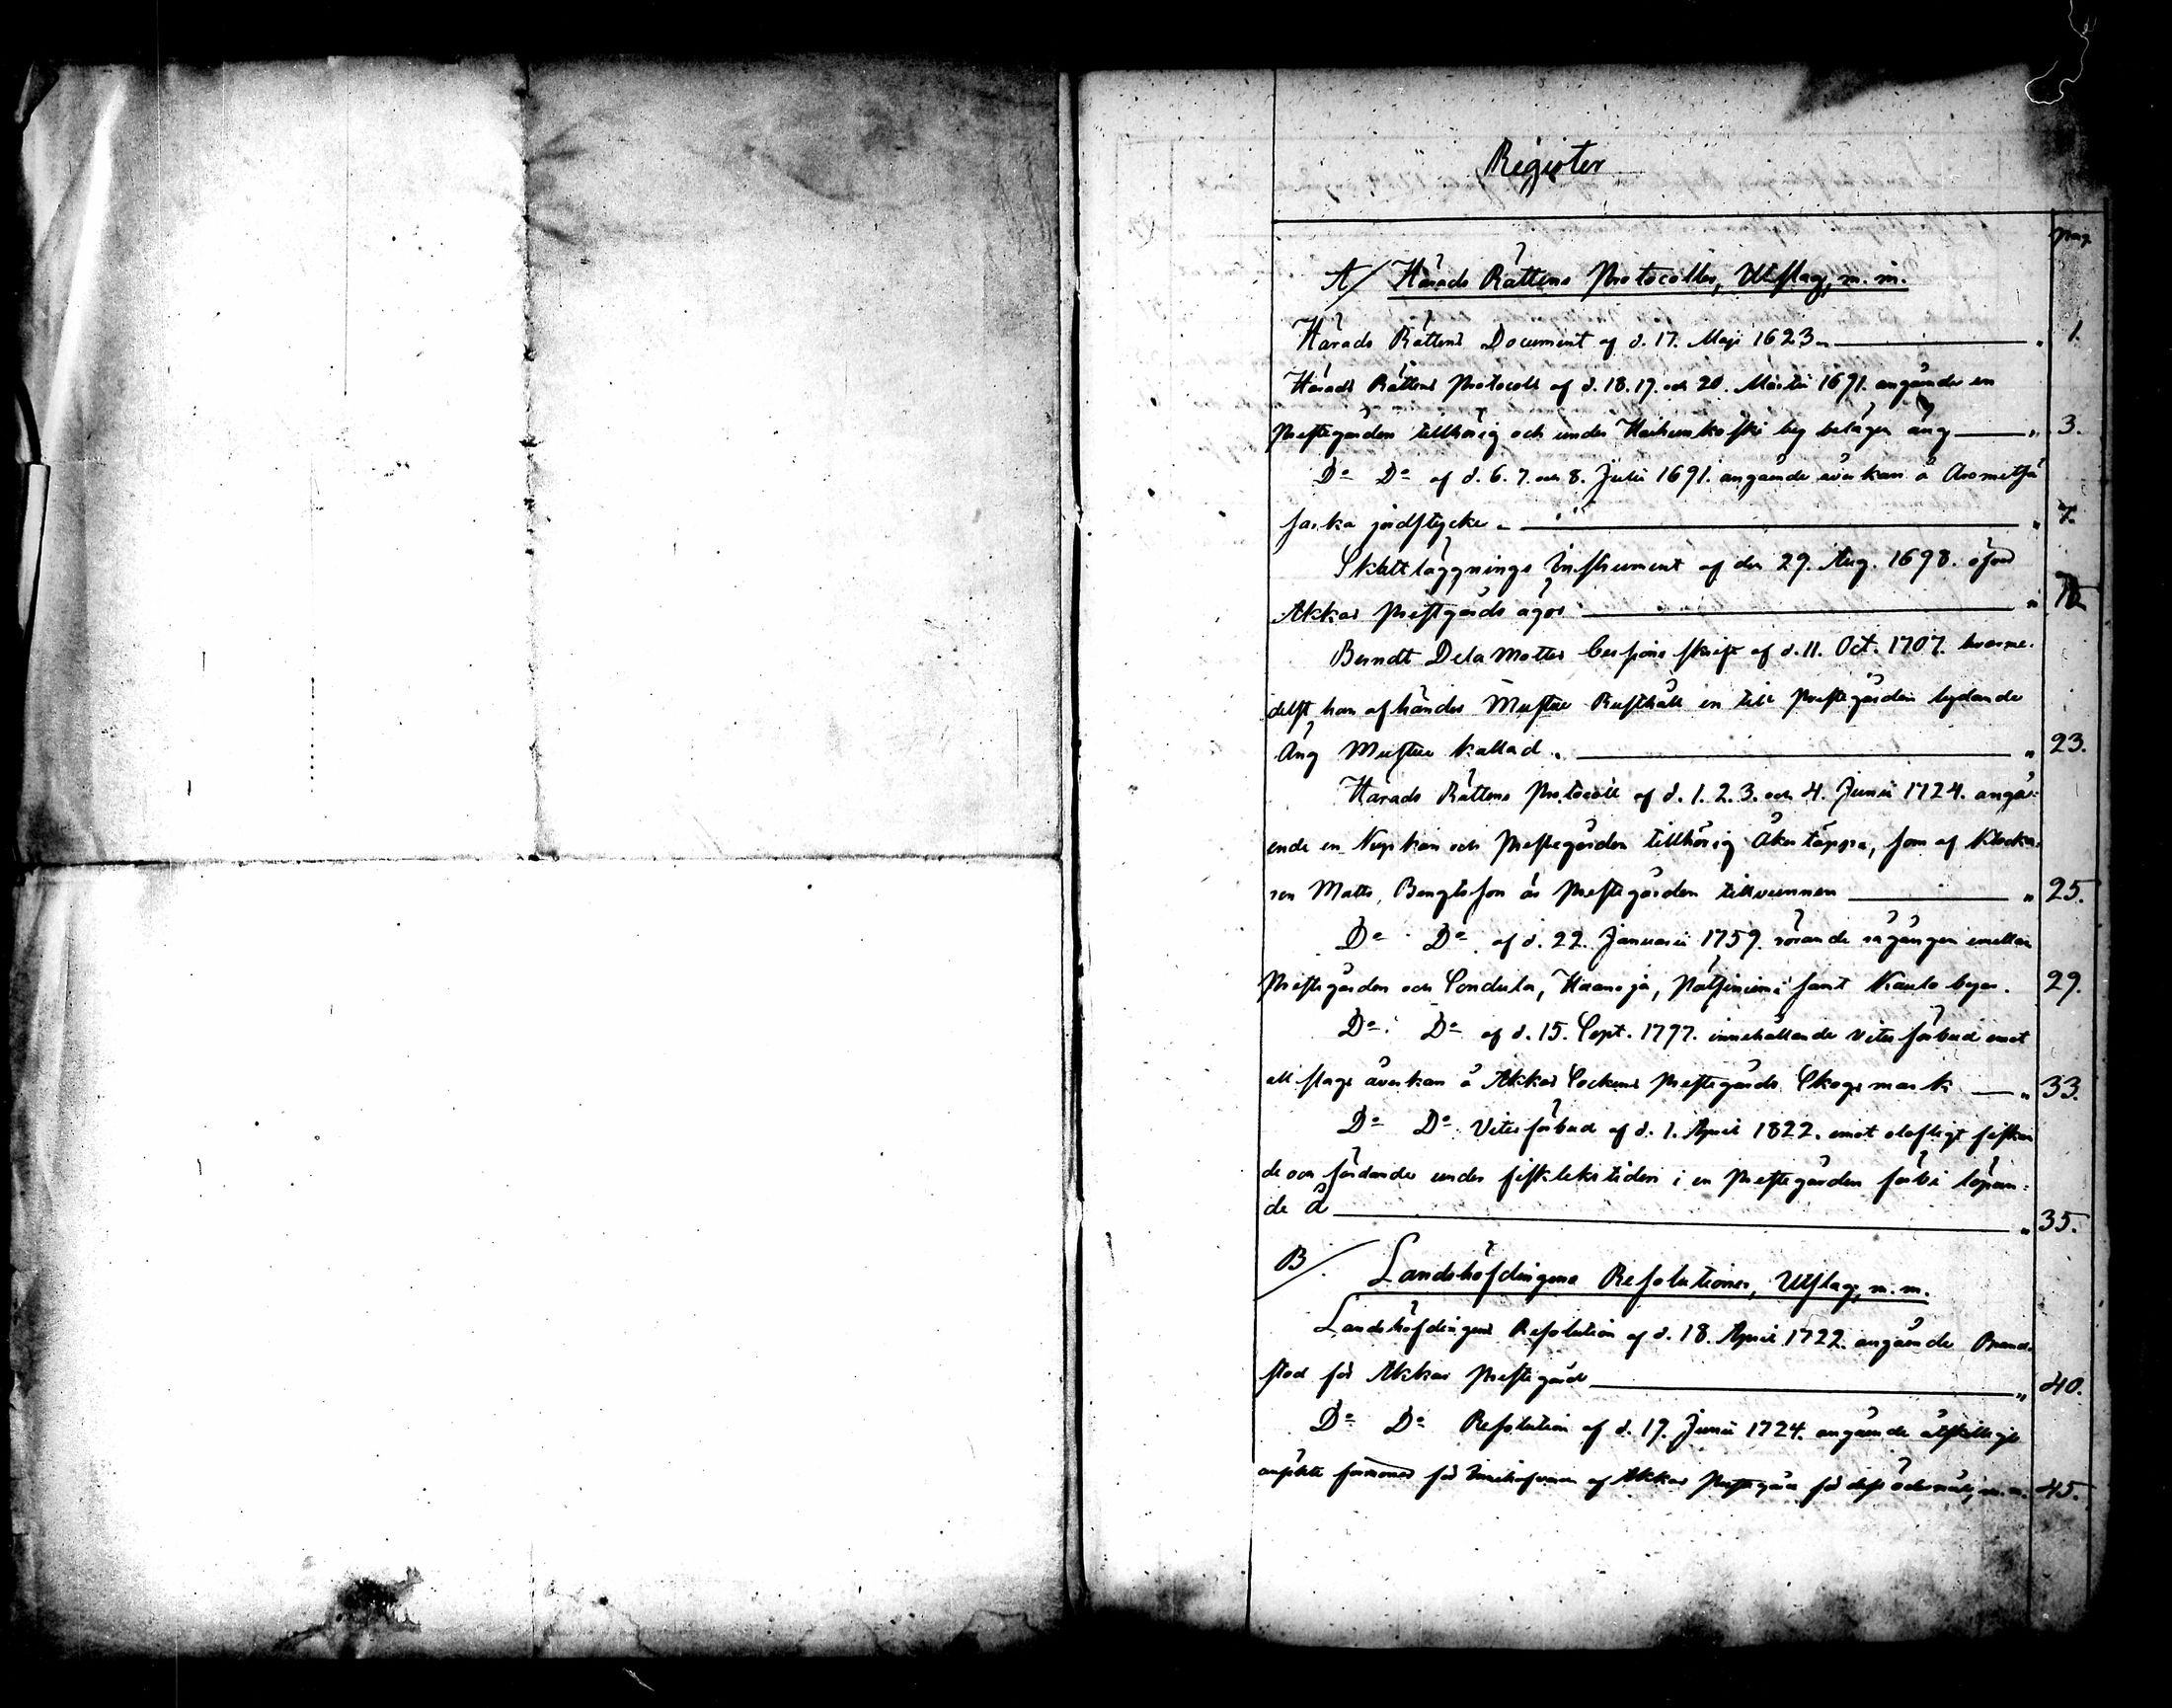 Register
pag
A/ Härads Rättens Protocoller, Utslag, m. m.
Härads Rättens Document af d. 17. Maji 1623 " 1.
Härads Rättens Protocoll af d. 18. 19. och 20. Martii 1691. angående en
Prestegården tillhörig och under by belägen äng " 3.
Do Do af d. 6. 7. och 8. Julii 1691. angående åverkan å
jordstycke " 7.
Skattläggnings Instrument af den 29. Aug. 1698. öfver
Akkas Prestgårds ägor "
Berndt De la Mottes skrift af d. 11. Oct. 1707. hvarme-
delst han afhänder Rusthåll en till Prestegården lydande
Äng kallad " 23.
Härads Rättens Protocoll af d. 1. 2. 3. och 4. Junii 1724. angå-
ende en och Prestegården tillhörig Åkertäppa, som af Klocka-
ren Matts Bengtsson är Prestegården tillvunnen " 25.
Do Do af d. 22. Januarii 1759. rörande rågången emellan
Prestegården och Sondula, samt byar. 29.
Do Do af d. 15. Sept. 1797. innehållande vites förbud emot
all slags åverkan å Akkas Sockens Prestegårds Skogsmark " 33.
Do Do Vites förbud af d. 1. April 1822. emot olofligt fiskan-
de och under fisklekstiden i en Prestegården förbi löpan-
de å " 35.
B/ Landshöfdingens Resolutioner, Utslag, m. m.
Landshöfdingens Resolution af d. 18. April 1722. angående Brand-
stod för Akkas Prestegård " 40.
Do Do Resolution af d. 19. Junii 1724. angående åtskillige
ansökte förmoner för Innehafvaren af Akkas Prestegård för dess ödesmål, m. m. 45.